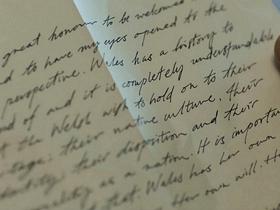 great honour to be welcomed
d to have my eyes opened to the
perspective. Wales has a history to
nd of and it is completely understandable
t the Welsh wish to hold on to their
tage: their native culture, their
dentity: their disposition and their
nality as a nation. It is important
that Wales has her own
Her own will. He